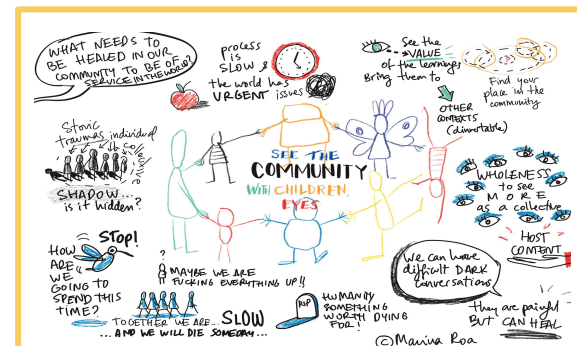 WHAT NEEDS TO
BE HEALED IN OUR
COMMUNITY TO BE OF
SERVICE IN THE WORLD?
process
is SLOW
& the world has
URGENT issues
See the
VALUE
of the learnings
Bring them to
OTHER
CONTEXTS
Find your
place in the
community
traumas individual
SHADOW...
is it hidden?
SEE THE
COMMUNITY
WITH CHILDREN
EYES
WHOLENESS
to see
MORE
as a collective
HOST
CONTENT
STOP!
HOW
ARE
WE
GOING TO
SPEND THIS
TIME?
MAYBE WE ARE
FUCKING EVERYTHING UP!!
TOGETHER WE ARE... SLOW
... AND WE WILL DIE SOMEDAY...
RIP
HUMANITY
SOMETHING
WORTH DYING
FOR!
We can have
difficult DARK
conversations
they are painful
BUT CAN HEAL
© Marina Roa